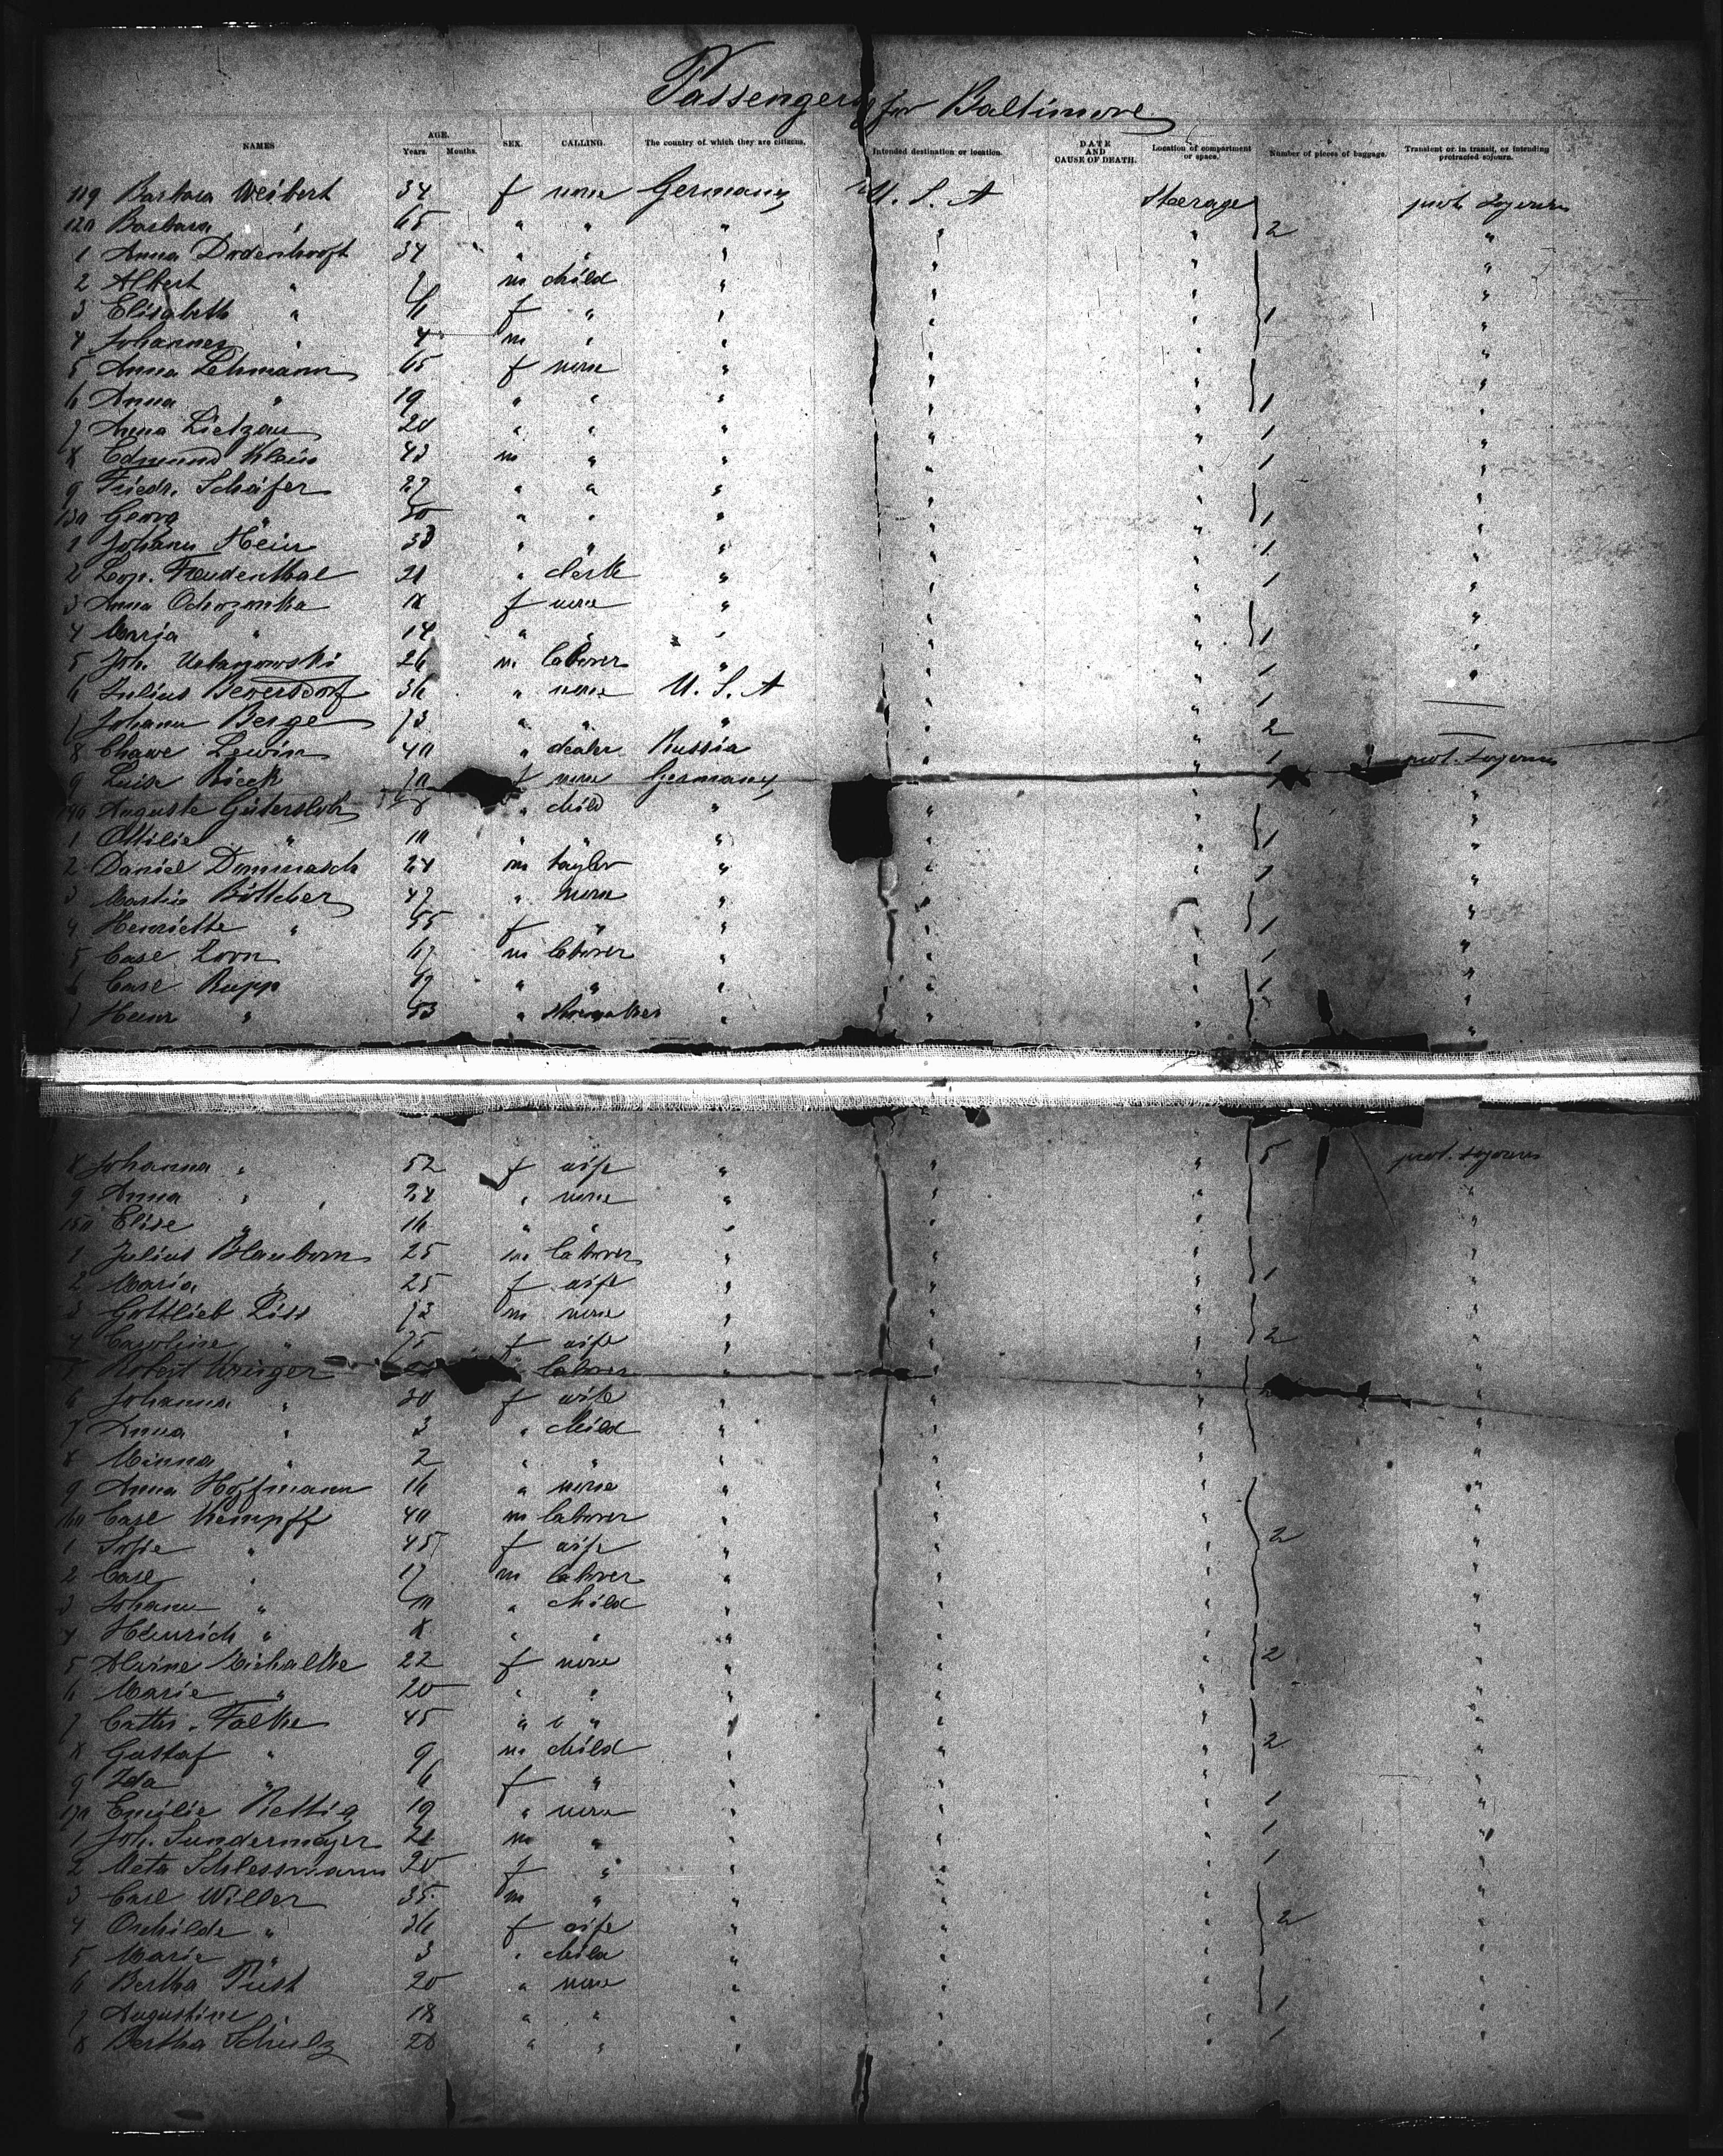 Passengers for Baltimore
NAMES AGE. Years. Months. SEX. CALLING. The country of which they are citizens. Intended destination or location. DATE AND CAUSE OF DEATH. Location of compartment or space. Number of pieces of baggage. Transient or in transit, or intending protracted sojourn.
119 Barbara Weibert 34 f none Germany U. S. A Steerage prot. sojourn
120 Barbara " 65 " " " " " 2 "
1 Anna Dodenhooft 34 " " " " " "
2 Albert " 7 m child " " " "
3 Elisabeth " 6 f " " " " 1 "
4 Johannes " 4 m " " " " "
5 Anna Lehmann 65 f none " " " "
6 Anna " 19 " " " " " 1 "
7 Anna Lietzau 20 " " " " " 1 "
8 Edmund Klein 43 m " " " " 1 "
9 Friedr. Schäfer 27 " " " " " "
130 Georg " " " " " " 1 "
1 Johann Hein 38 " " " " " 1 "
2 Leop. Freudenthal 21 " clerk " " " 1 "
3 Anna 18 f none " " " "
4 Maria " 14 " " " " " 1 "
5 Joh. 26 m laborer " " " 1 "
6 Julius Bewersdorf 36 " none U. S. A " " 1 —
7 Johann Berge 73 " " " " " 2 —
8 Chawe Lewin 40 " dealer Russia " " 1 prot. sojourn
9 Luise f none Germany " "
140 Auguste Gütersloh 8 " child " " " "
1 Ottilie " 10 " " " " " 1 "
2 Daniel Dommasch 24 m taylor " " " 1 "
3 Martin Böttcher 47 " none " " " "
4 Henriette " 55 f " " " " 1 "
5 Carl Zorn 67 m laborer " " " 1 "
6 Carl Rupp 19 " " " " " 1 "
7 " 53 " shoemaker " " " "
8 Johanna " 52 f wife " " " 5 prot. sojourn
9 Anna " 24 " none " " " "
150 Elise " 16 " " " " " "
1 Julius Blauborn 25 m laborer " " " "
2 Maria " 25 f wife " " " 1 "
3 Gottlieb Piss 73 m none " " " "
4 Caroline " 75 f wife " " " 2 "
5 Robert " laborer " " " "
6 Johanna " 30 f wife " " " "
7 Anna " 3 " child " " " "
8 Minna " 2 " " " " " "
9 Anna Hoffmann 16 " none " " " "
160 Carl Kempff 40 m laborer " " " "
1 Sofie " 45 f wife " " " 2 "
2 Carl " 17 m laborer " " " "
3 Johann " 10 " child " " " "
4 Heinrich " 8 " " " " " "
5 Alwine Michalke 22 f none " " " 2 "
6 Marie " 20 " " " " " "
7 Cath. Falke 45 " " " " " "
8 Gustaf " 9 m child " " " 2 "
9 Ida " 6 f " " " " "
170 Emilie Rettig 19 " none " " " 1 "
1 Joh. Sundermeyer 21 m " " " " 1 "
2 Meta Schlessmann 20 f " " " " 1 "
3 Carl Willer 35 m " " " " "
4 Orchilde " 36 f wife " " " 2 "
5 Marie " 3 " child " " " "
6 Bertha Püst 20 " none " " " "
7 Augustine " 18 " " " " " 1 "
8 Bertha Schulz 20 " " " " " 1 "